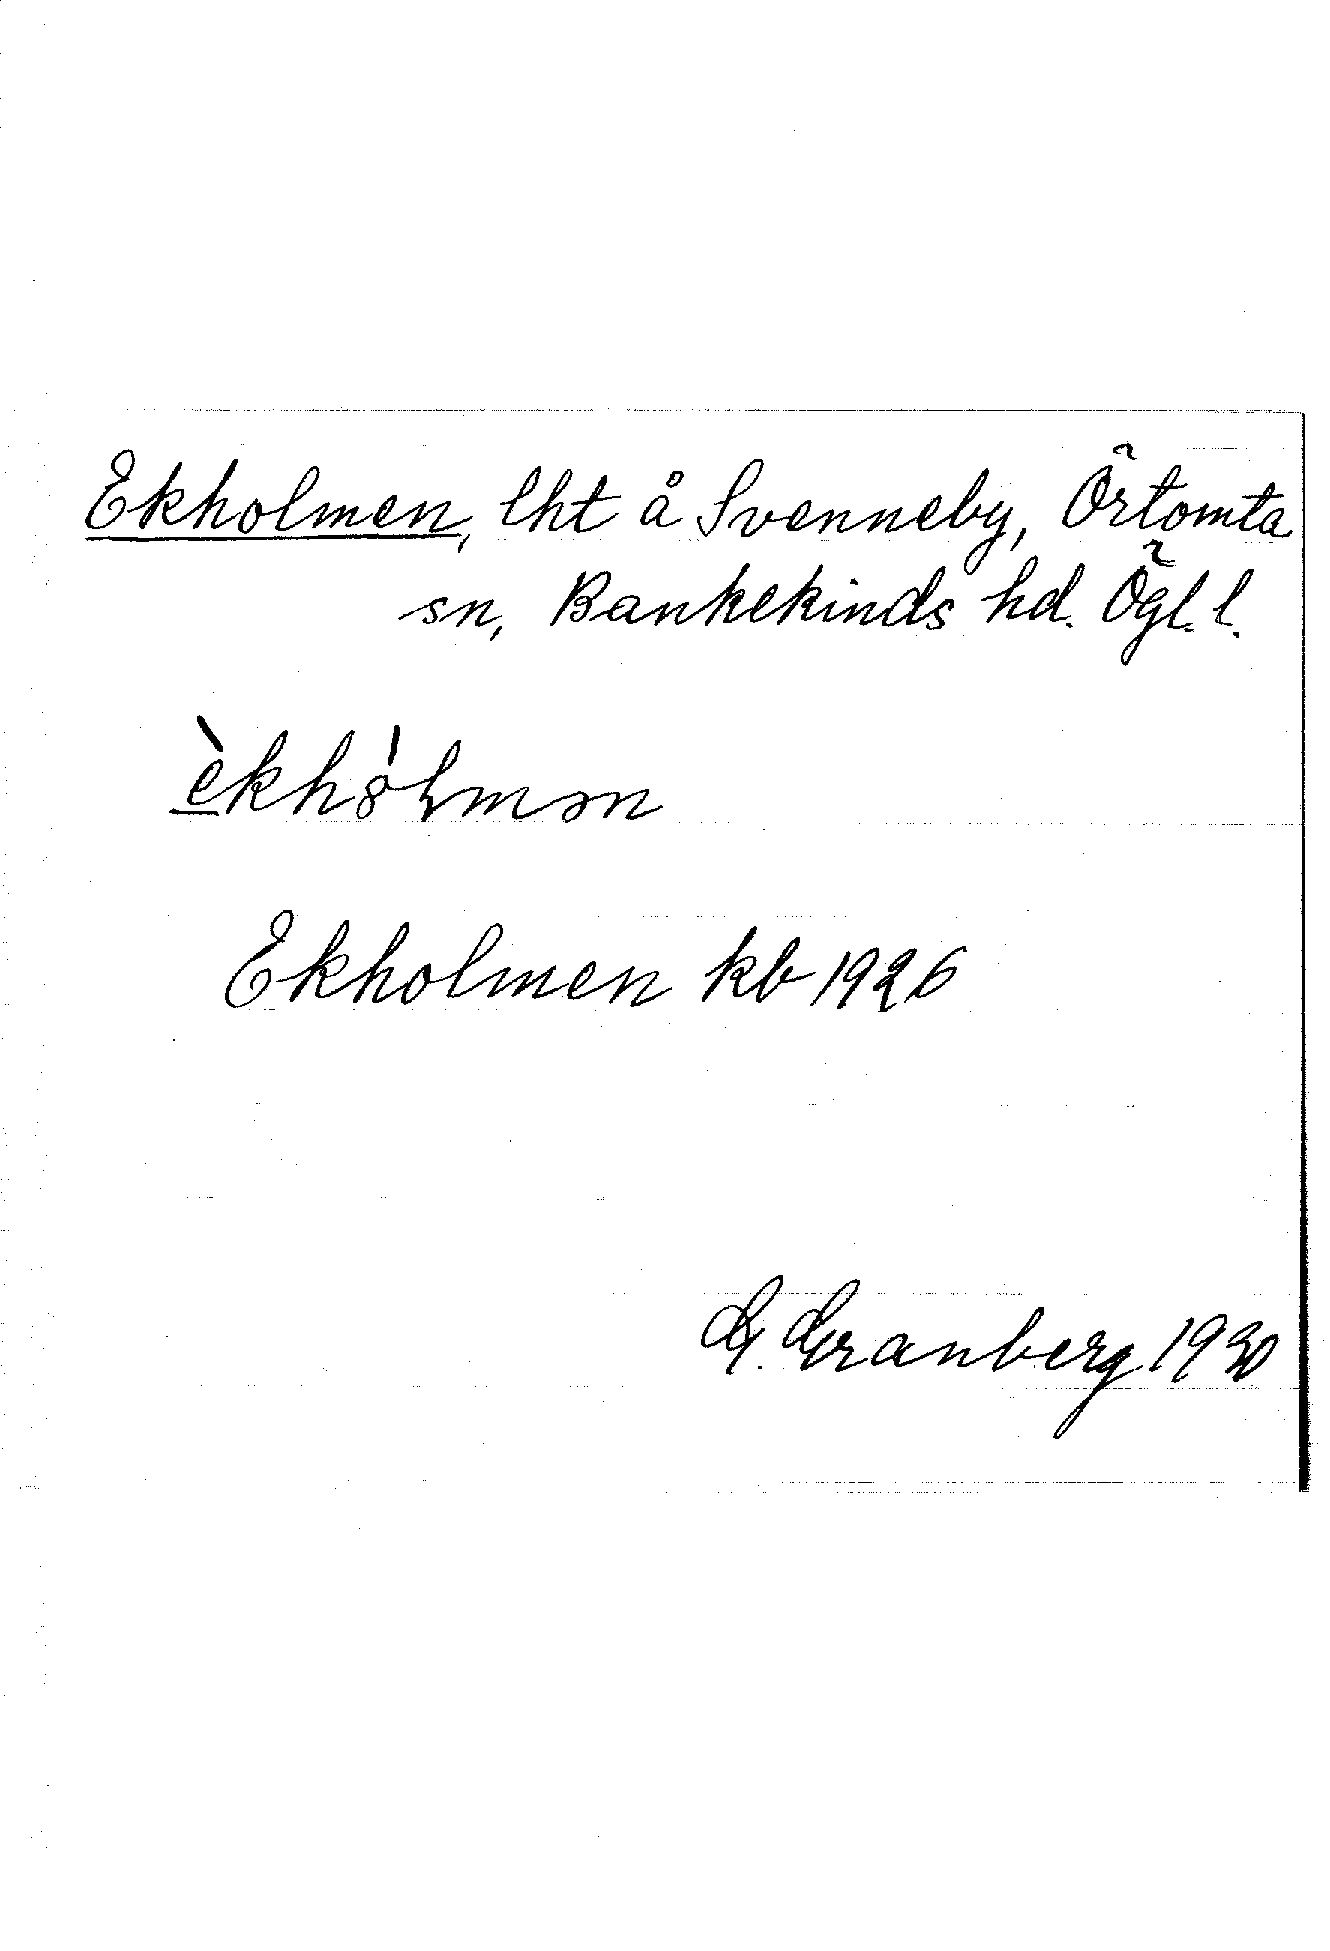 Ekholmen, lht å Svenneby, Örtomta
sn, Bankekinds hd. Ögl. l.
èkhȯlmən
Ekholmen kb 1926
G. Granberg 1930